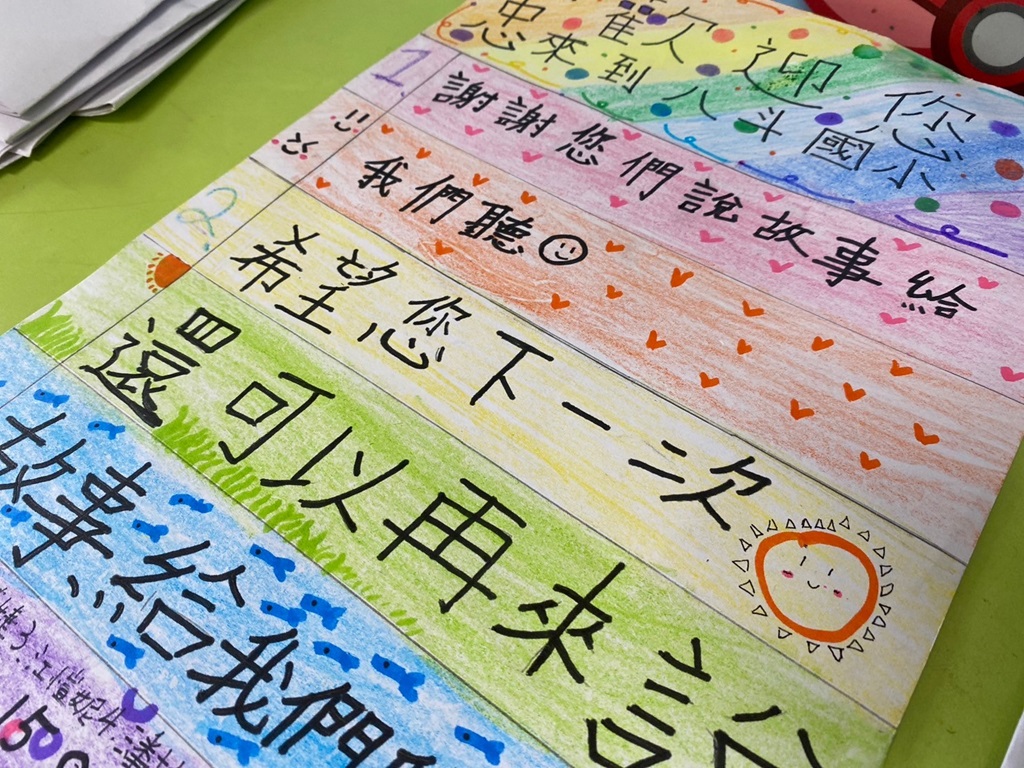 歡迎您
來到八斗國小
1
謝謝您們說故事給
我們聽
2
希望您下一次
還可以再來說
故事給我們